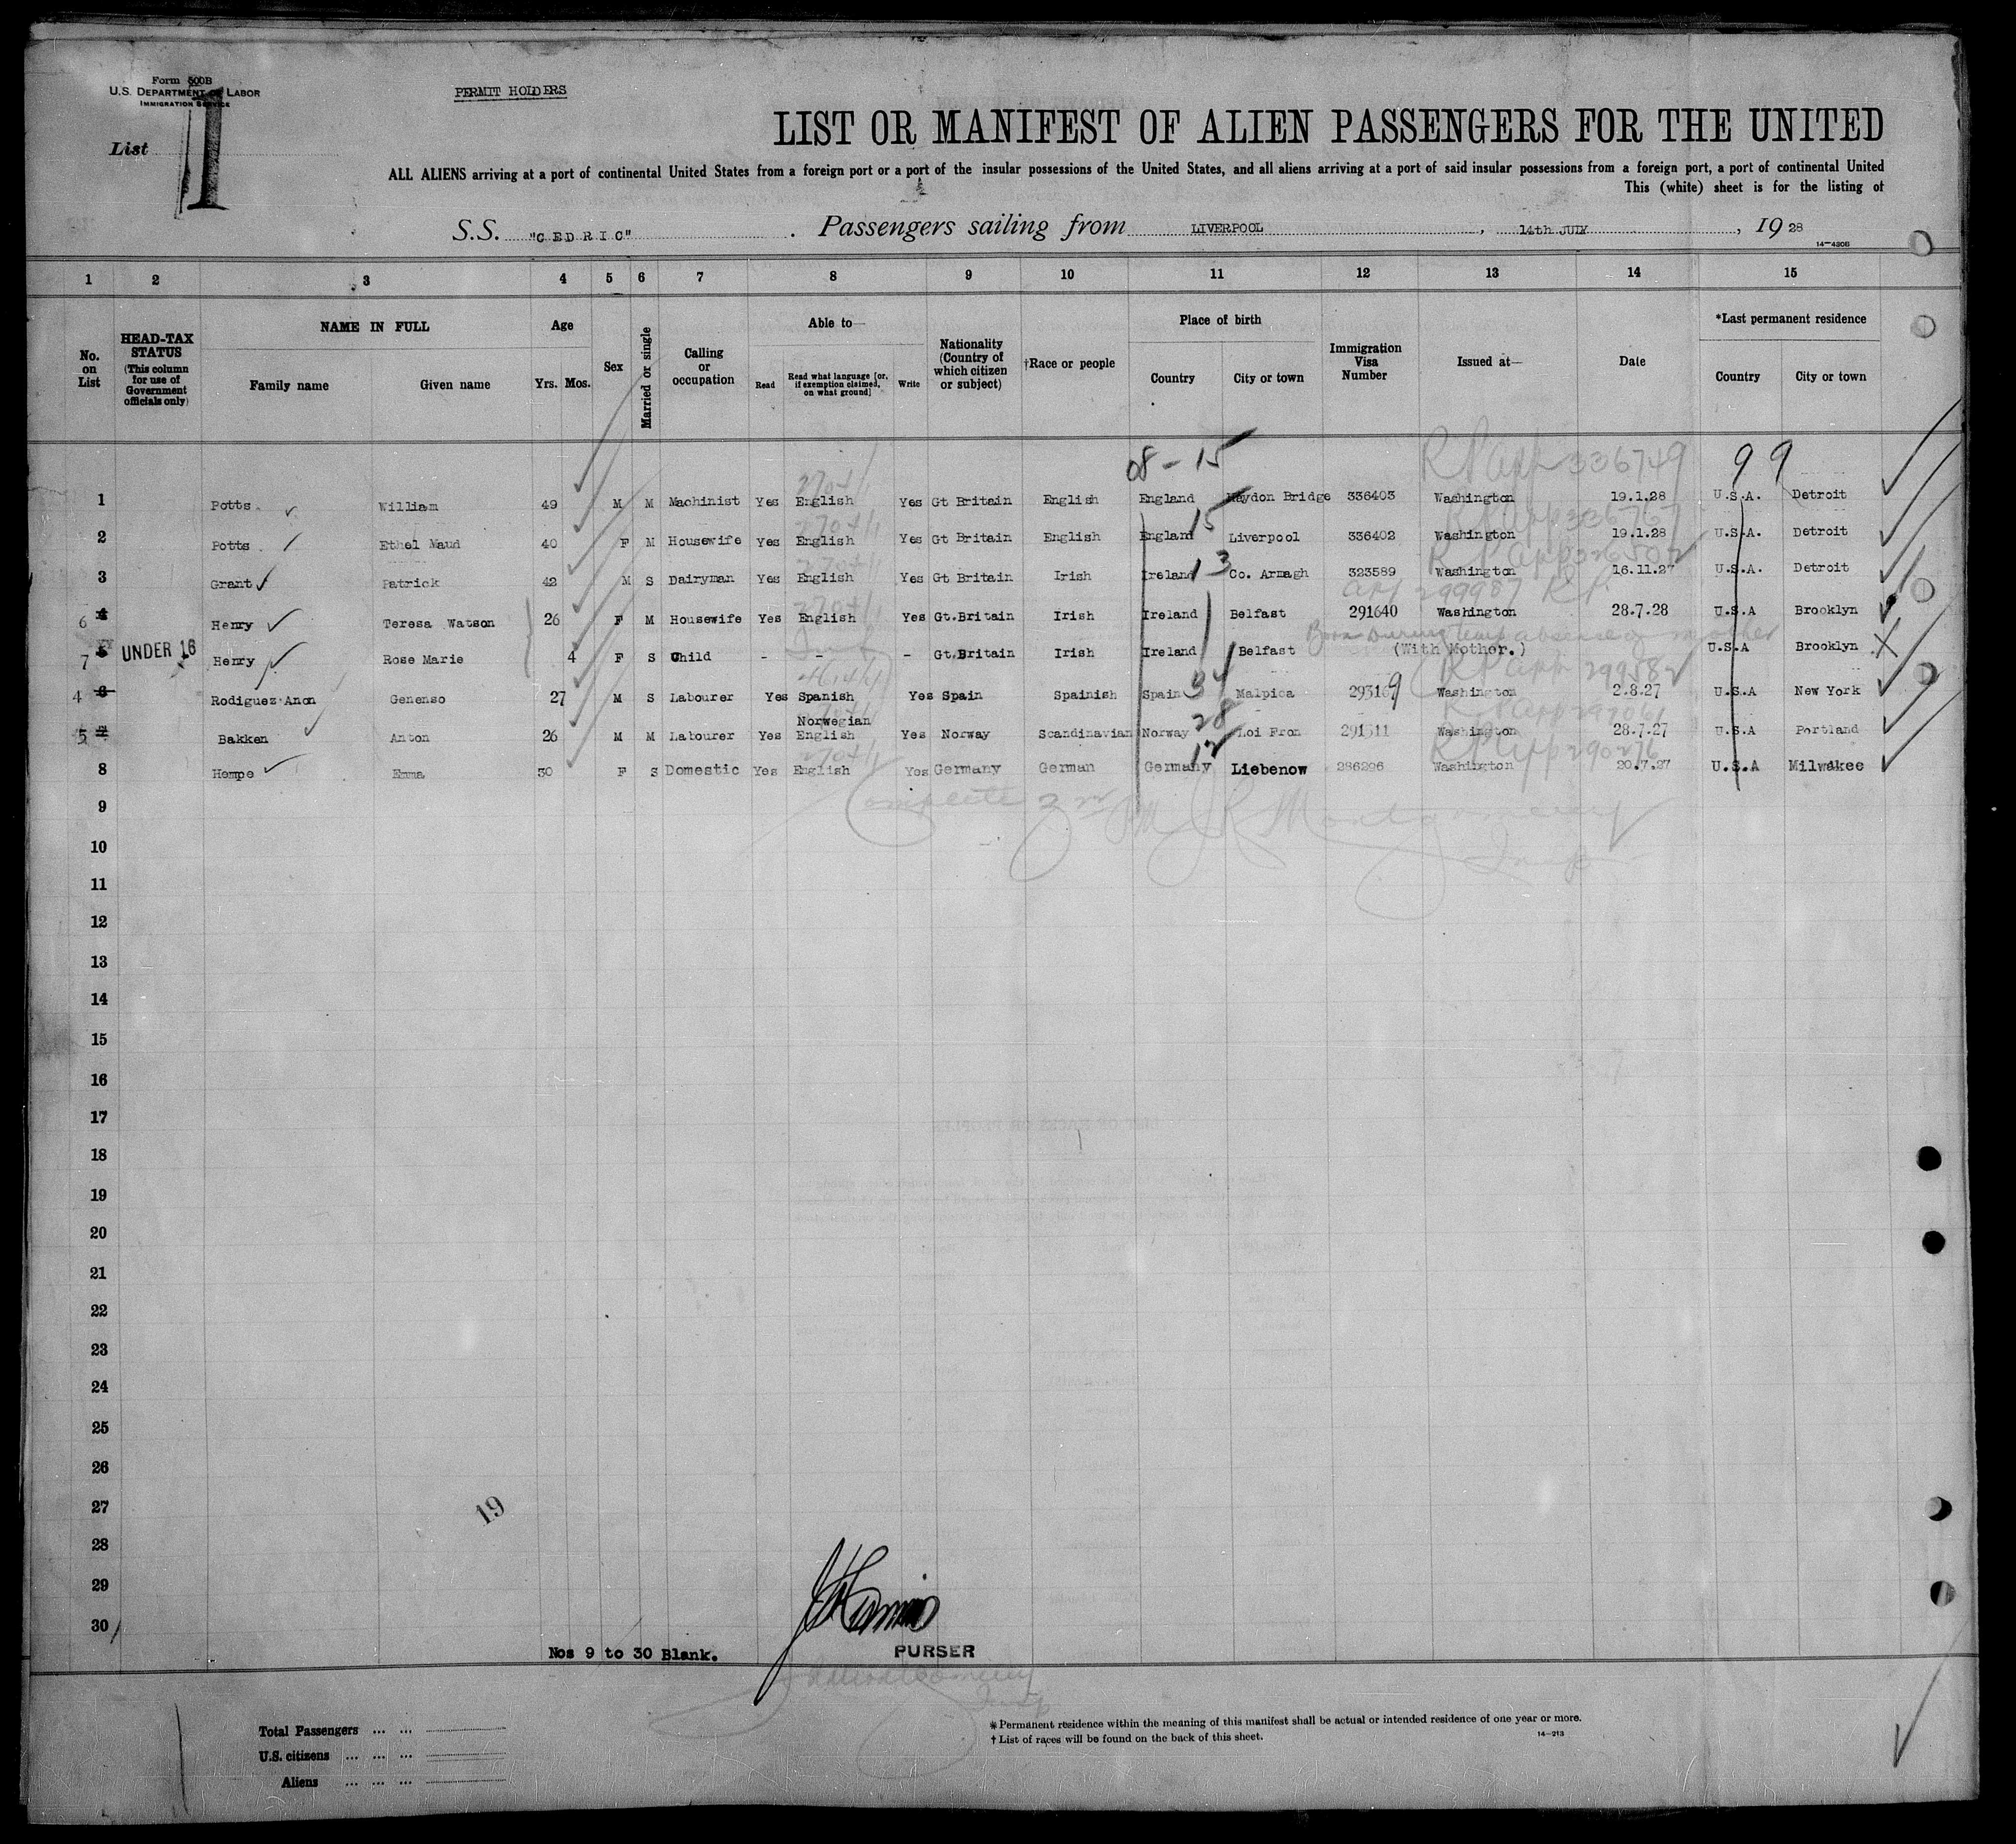 Form 500B
U.S. DEPARTMENT OF LABOR
IMMIGRATION SERVICE
PERMIT HOLDERS
List 1
LIST OR MANIFEST OF ALIEN PASSENGERS FOR THE UNITED
ALL ALIENS arriving at a port of continental United States from a foreign port or a port of the insular possessions of the United States, and all aliens arriving at a port of said insular possessions from a foreign port, a port of continental United
This (white) sheet is for the listing of
S.S. "CEDRIC" . Passengers sailing from LIVERPOOL , 14th JULY , 1928
14—430B
1 2 3 4 5 6 7 8 9 10 11 12 13 14 15
No. on List
HEAD-TAX STATUS (This column for use of Government officials only)
NAME IN FULL Family name Given name
Age Yrs. Mos.
Sex
Married or single
Calling or occupation
Able to— Read Read what language [or, if exemption claimed, on what ground] Write
Nationality (Country of which citizen or subject)
†Race or people
Place of birth Country City or town
Immigration Visa Number
Issued at—
Date
*Last permanent residence Country City or town
08-15 RP app 336749 99
1 Potts William 49 M M Machinist Yes English Yes Gt Britain English England Haydon Bridge 336403 Washington 19.1.28 U.S.A. Detroit
15 RP app 336767
2 Potts Ethel Maud 40 F M Housewife Yes English Yes Gt Britain English England Liverpool 336402 Washington 19.1.28 U.S.A. Detroit
13
3 Grant Patrick 42 M S Dairyman Yes English Yes Gt Britain Irish Ireland Co. Armagh 323589 Washington 16.11.27 U.S.A. Detroit
app 299987 RP
6 4 Henry Teresa Watson 26 F M Housewife Yes English Yes Gt.Britain Irish Ireland Belfast 291640 Washington 28.7.28 U.S.A Brooklyn
Born During temp absence of mother
7 5 UNDER 16 Henry Rose Marie 4 F S Child - - - Gt.Britain Irish Ireland Belfast (With Mother.) U.S.A Brooklyn
34 RP app 299582
4 6 Rodiguez Anon Genenso 27 M S Labourer Yes Spanish Yes Spain Spainish Spain Malpica 293169 Washington 2.8.27 U.S.A New York
28
5 7 Bakken Anton 26 M M Labourer Yes Norwegian English Yes Norway Scandinavian Norway Loi Fron 291511 Washington 28.7.27 U.S.A Portland
12 RP app 290276
8 Hempe Emma 30 F S Domestic Yes English Yes Germany German Germany Liebenow 286296 Washington 20.7.27 U.S.A Milwakee
9 Complete J R Montgomery
10 Insp
11
12
13
14
15
16
17
18
19
20
21
22
23
24
25
26
27 19
28
29
30
Nos 9 to 30 Blank. PURSER
Total Passengers ... ...
U.S. citizens ... ... ...
Aliens ... ... ...
* Permanent residence within the meaning of this manifest shall be actual or intended residence of one year or more.
† List of races will be found on the back of this sheet.
14—213